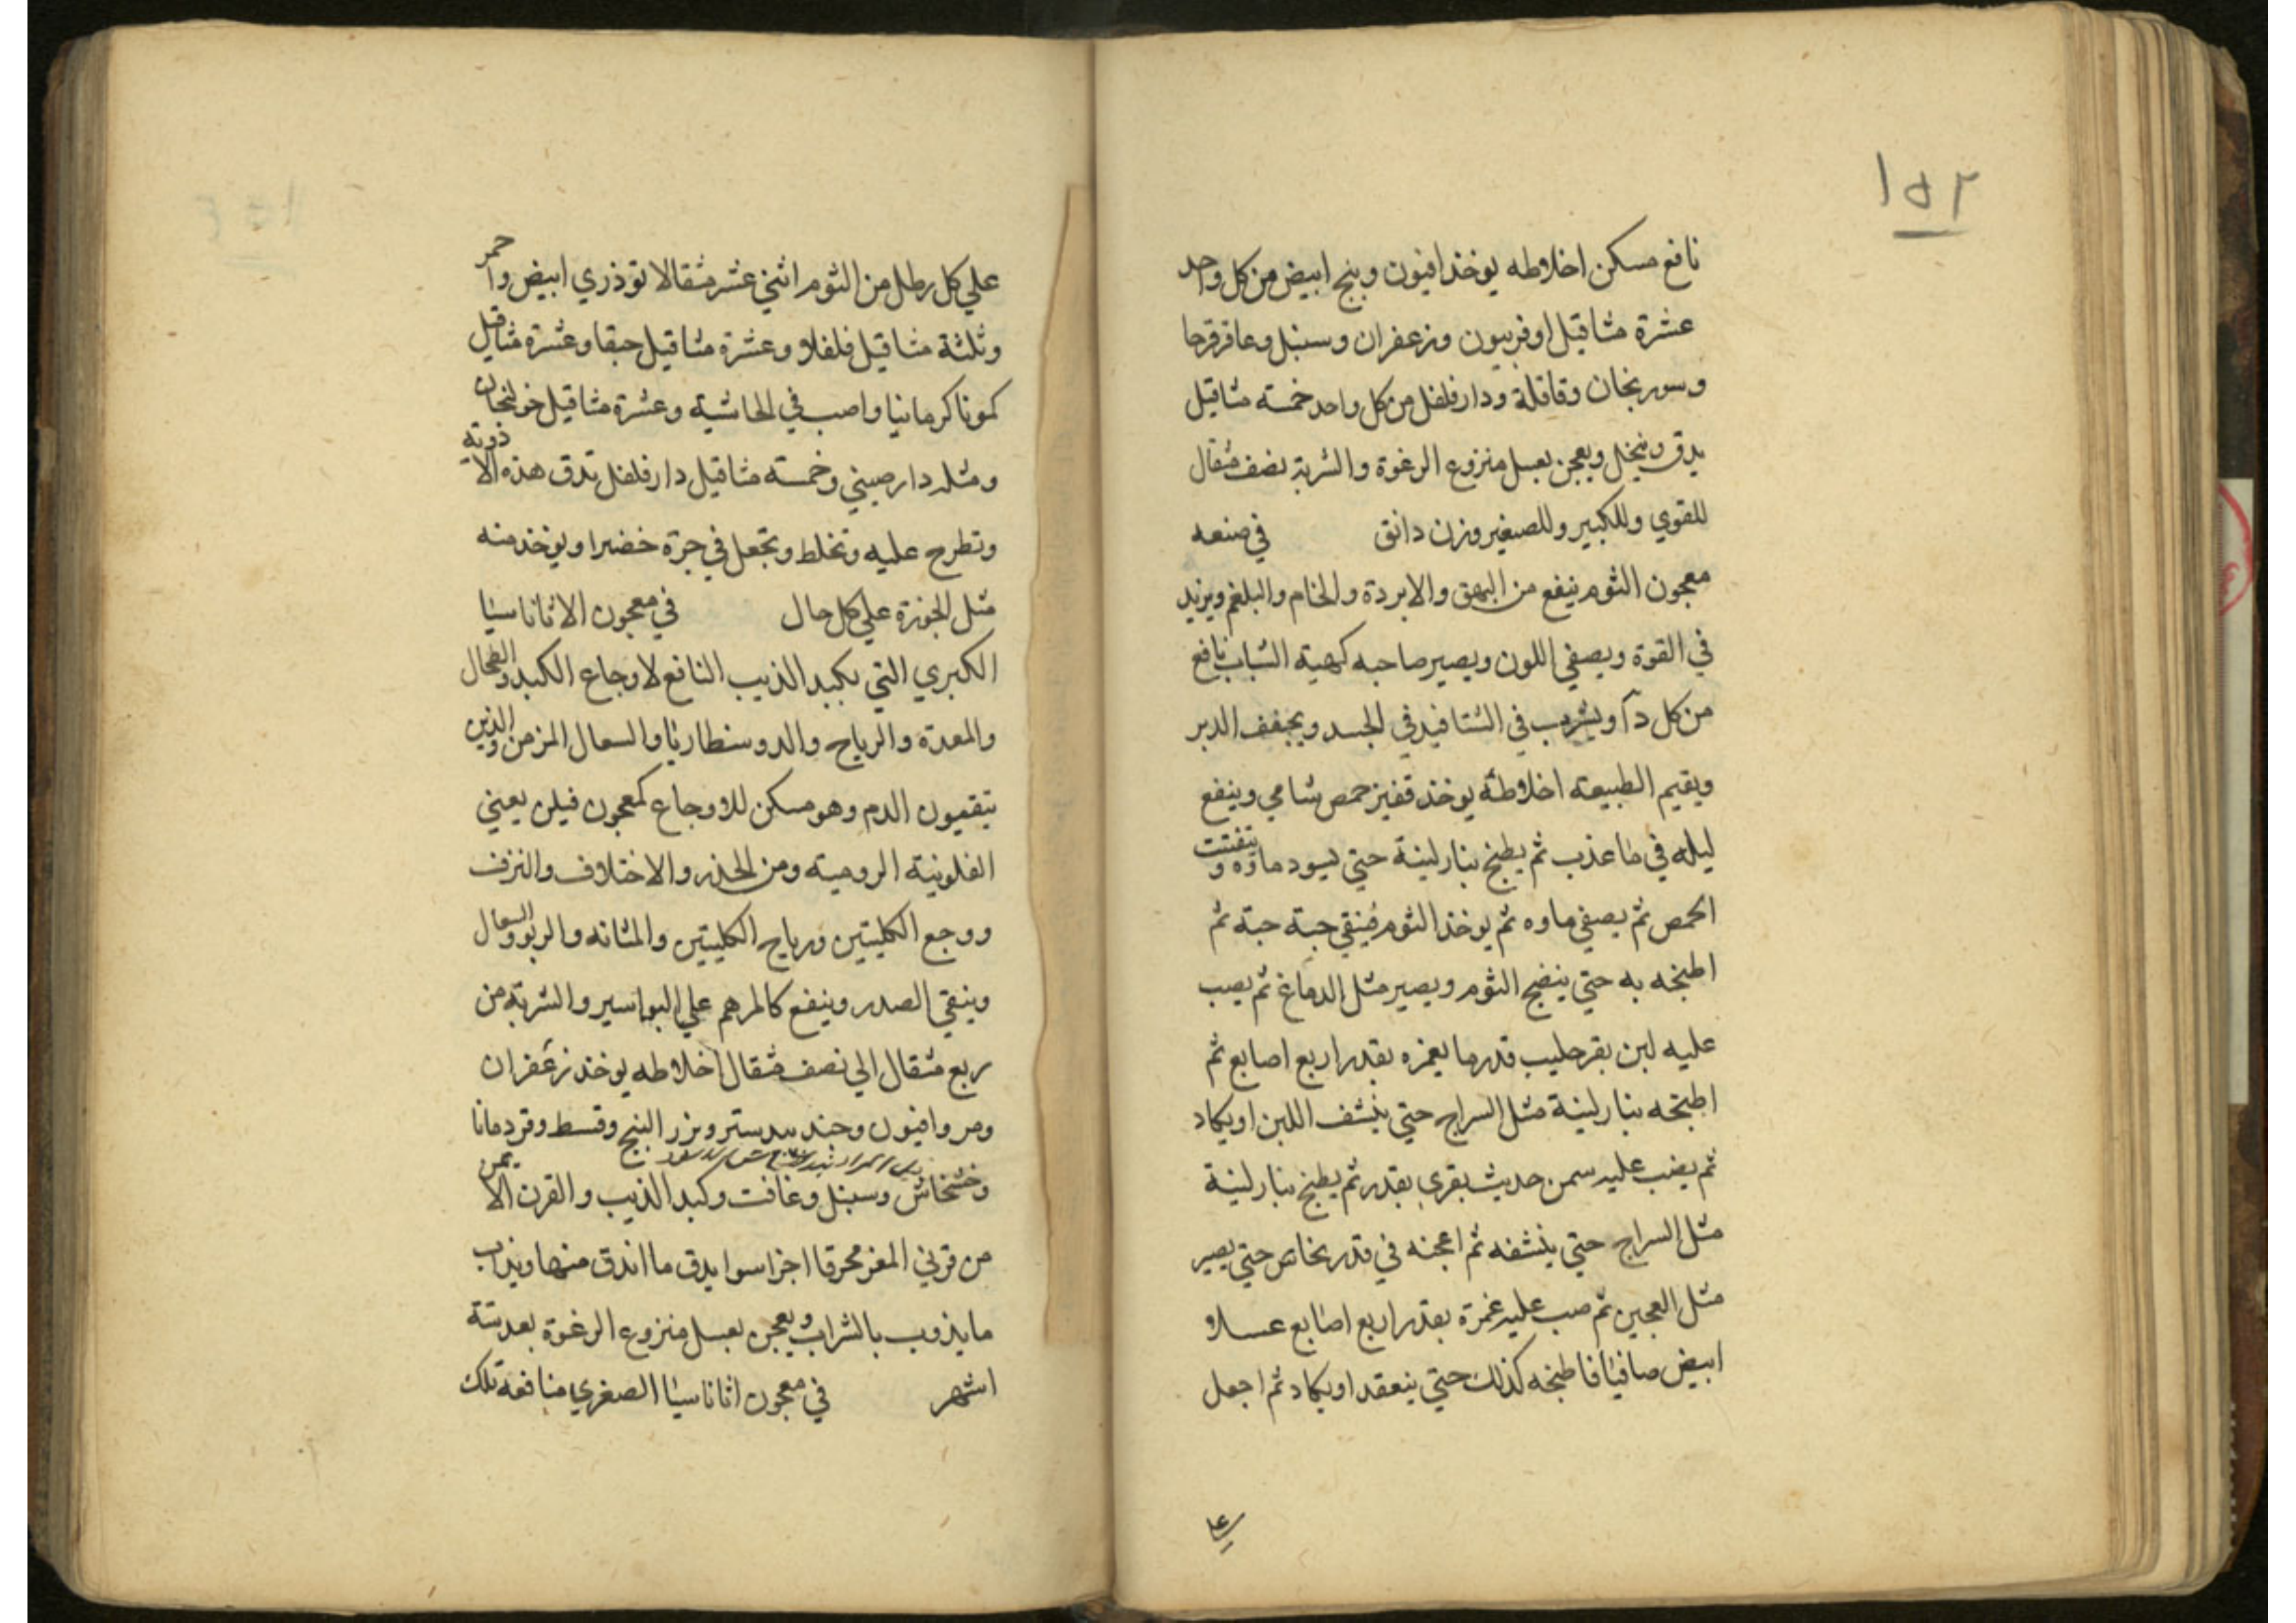 ١٥٢
نافع مسكن اخلاطه يوخذ افيون وبنج ابيض من كل واحد
عشرة مثاقيل اوفربيون وزعفران وسنبل وعاقرقرحا
وسورنجان وقاقلة ودارفلفل من كل واحد خمسة مثاقيل
يدق وينخل ويعجن بعسل منزوع الرغوة والشربة نصف مثقال
للقوي وللكبير وللصغير وزن دانق في صنعه
معجون الثوم ينفع من البهق والابردة والخام والبلغم ويزيد
في القوة ويصفي اللون ويصير صاحبه كهية الشباب نافع
من كل دآ ويشرب في الشتا فيدفي الجسد ويجفف الدبر
ويقيم الطبيعة اخلاطه يوخذ قفيز حمص شامي وينفع
ليله في ما عذب ثم يطبخ بنار لينة حتي يسود ماؤه وتتفتت
الحمص ثم يصفي ماوه ثم يوخذ الثوم فينقي حبة حبة ثم
اطبخه به حتي ينضج الثوم ويصير مثل الدماغ ثم يصب
عليه لبن بقر حليب قدر ما يغمره بقدر اربع اصابع ثم
اطبخه بنار لينة مثل السراج حتي ينشف اللبن او يكاد
ثم يضب عليه سمن حديث بقري بقدر ثم يطبخ بنار لينة
مثل السراج حتي ينشفه ثم اعجنه في قدر نحاس حتي يصير
مثل العجين ثم صب عليه غمرة بقدر اربع اصابع عسلا
ابيض صافيا فاطبخه كذلك حتي ينعقد او يكاد ثم اجعل
علي
علي كل رطل من الثوم اثني عشر مثقالا توذري ابيض واحمر
وثلثة مثاقيل فلفلا وعشرة مثاقيل حبقا وعشرة مثاقيل
كمونا كرمانيا واصب في الحاشية وعشرة مثاقيل خولنجان
ومثله دارصيني وخمسة مثاقيل دارفلفل تدق هذه الادوية
وتطرح عليه وتخلط وتجعل في جرة خضرا ويوخذ منه
مثل الجوزة علي كل حال في معجون الاثاناسيا
الكبري التي بكبد الذيب النافع لاوجاع الكبد والطحال
والمعدة والرياح والدوسنطاريا والسعال المزمن والذين
يتقيون الدم وهو مسكن للاوجاع كمعجون فيلن يعني
الفلونية الرومية ومن الخدر والاختلاف والنزف
ووجع الكليتين ورياح الكليتين والمثانه والربو والسعال
وينقي الصدر وينفع كالمرهم علي البواسير والشربة من
ربع مثقال الي نصف مثقال اخلاطه يوخذ زعفران
ومر وافيون وجندبيدستر وبزر البنج وقسط وقردمانا
وخشخاش وسنبل وغافت وكبد الذيب والقرن الايمن
من قرني المعز محرقا اجزا سوا يدق ما اندق منها ويذاب
ما يذوب بالشراب ويعجن بعسل منزوع الرغوة بعد ستة
اشهر في معجون اثاناسيا الصغري منافعه تلك